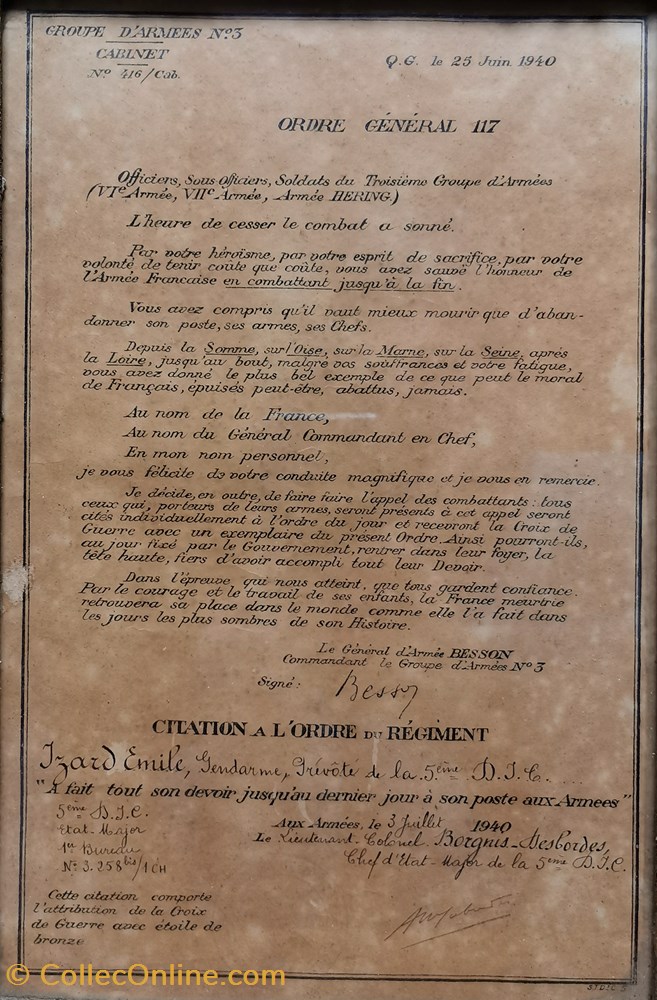 GROUPE D'ARMEES Nº3
CABINET
Nº 416/Cab.
Q.G. le 25 Juin 1940
ORDRE GÉNÉRAL 117
Officiers, Sous-Officiers, Soldats du Troisième Groupe d'Armées
(VIe Armée, VIIe Armée, Armée HERING.)
L'heure de cesser le combat a sonné.
Par votre héroïsme, par votre esprit de sacrifice, par votre
volonté de tenir coûte que coûte, vous avez sauvé l'honneur de
l'Armée Française en combattant jusqu'à la fin.
Vous avez compris qu'il vaut mieux mourir que d'aban-
donner son poste, ses armes, ses Chefs.
Depuis la Somme, sur l'Oise, sur la Marne, sur la Seine, après
la Loire, jusqu'au bout, malgré vos souffrances et votre fatigue,
vous avez donné le plus bel exemple de ce que peut le moral
de Français, épuisés peut-être, abattus, jamais.
Au nom de la France,
Au nom du Général Commandant en Chef,
En mon nom personnel,
je vous félicite de votre conduite magnifique et je vous en remercie.
Je décide, en outre, de faire faire l'appel des combattants : tous
ceux qui, porteurs de leurs armes, seront présents à cet appel seront
cités individuellement à l'ordre du jour et recevront la Croix de
Guerre avec un exemplaire du présent Ordre. Ainsi pourront-ils,
au jour fixé par le Gouvernement, rentrer dans leur foyer, la
tête haute, fiers d'avoir accompli tout leur Devoir.
Dans l'épreuve qui nous atteint, que tous gardent confiance.
Par le courage et le travail de ses enfants, la France meurtrie
retrouvera sa place dans le monde comme elle l'a fait dans
les jours les plus sombres de son Histoire.
Le Général d'Armée BESSON
Commandant le Groupe d'Armées Nº3
Signé : Besson
CITATION A L'ORDRE DU RÉGIMENT
Izard Emile, Gendarme, Prévôté de la 5.ème D.I.C.
"A fait tout son devoir jusqu'au dernier jour à son poste aux Armées"
5ème D.I.C.
Etat-Major
1er Bureau
Nº 3.258 bis/1CH
Aux Armées, le 3 Juillet 1940
Le Lieutenant-Colonel Borgnis-Desbordes,
Chef d'Etat-Major de la 5ème D.I.C.
Cette citation comporte
l'attribution de la Croix
de Guerre avec étoile de
bronze
© CollecOnline.com